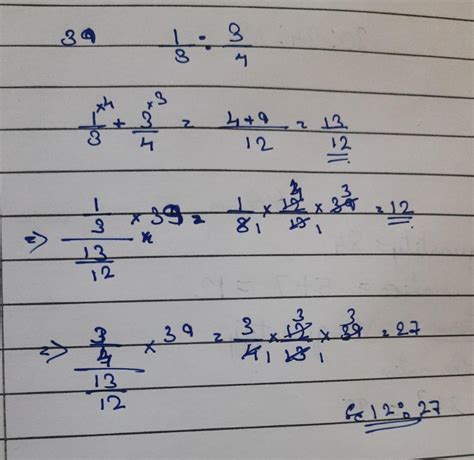 39 1/3 : 3/4
1/3 ×4 + 3/4 ×3 = 4+9/12 = 13/12
=> 1/3 / 13/12 × 39 = 1/3 1 × 12 4/13 1 × 39 3 = 12
=> 3/4 / 13/12 × 39 = 3/4 1 × 12 3/13 1 × 39 3 = 27
12 : 27